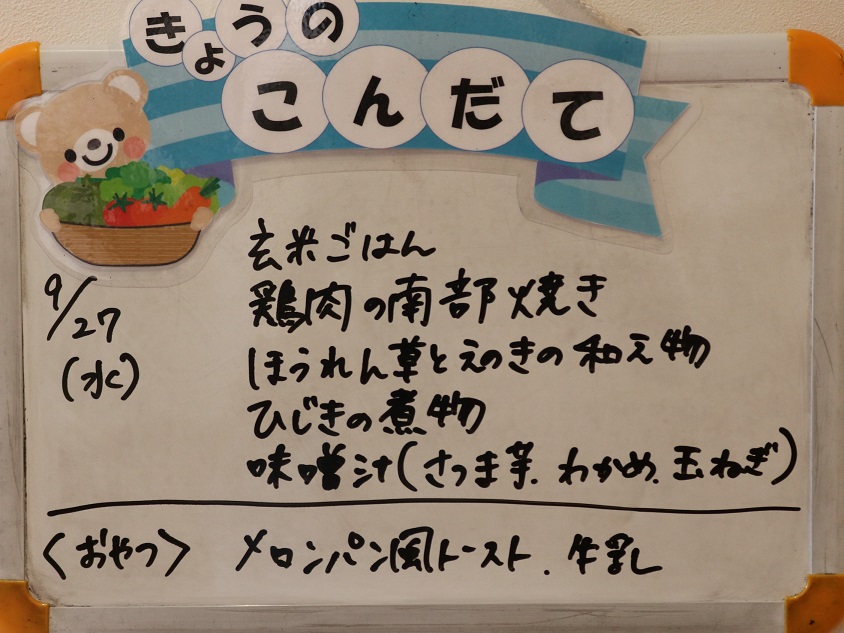 きょうの
こんだて
9/27
(水)
玄米ごはん
鶏肉の南部焼き
ほうれん草とえのきの和え物
ひじきの煮物
味噌汁(さつま芋、わかめ、玉ねぎ)
<おやつ> メロンパン風トースト、牛乳